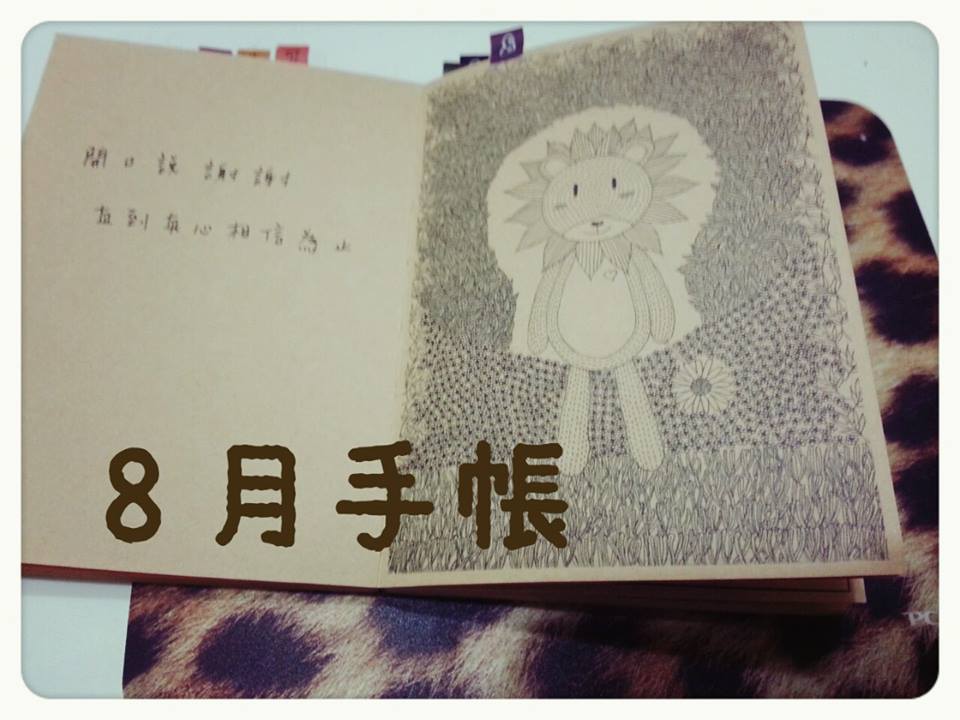 開口說謝謝
直到真心相信為止
8月手帳